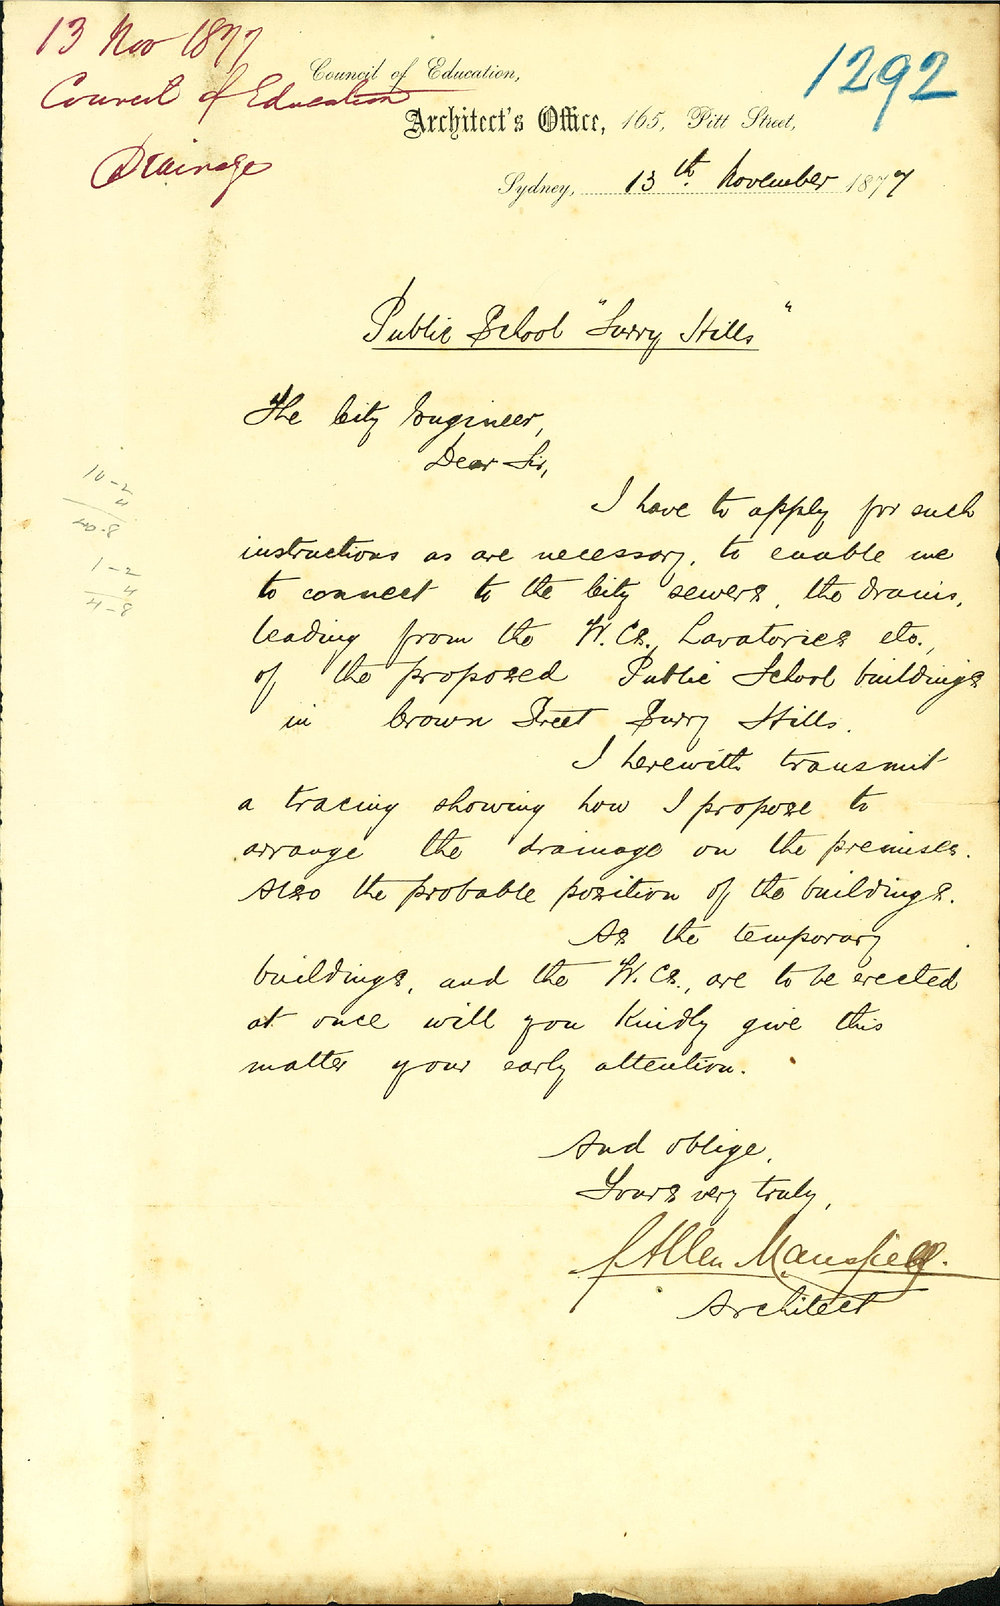 13 Nov 1877
Council of Education
Drainage
1292
Council of Education,
Architect's Office, 165, Pitt Street,
Sydney, 13th. November 1877
Public School "Surry Hills"
The City Engineer,
Dear Sir,
I have to apply for such
instructions as are necessary, to enable me
to connect to the City sewers, the drains,
leading from the W.Cs., Lavatories etc.,
of the proposed Public School buildings
in Crown Street Surry Hills.
I herewith transmit
a tracing showing how I propose to
arrange the drainage on the premises.
Also the probable position of the buildings.
As the temporary
buildings, and the W.Cs., are to be erected
at once will you kindly give this
matter your early attention.
And oblige,
Yours very truly,
J Allen Mansfield.
Architect
10-2
4
1-2
4
4-8